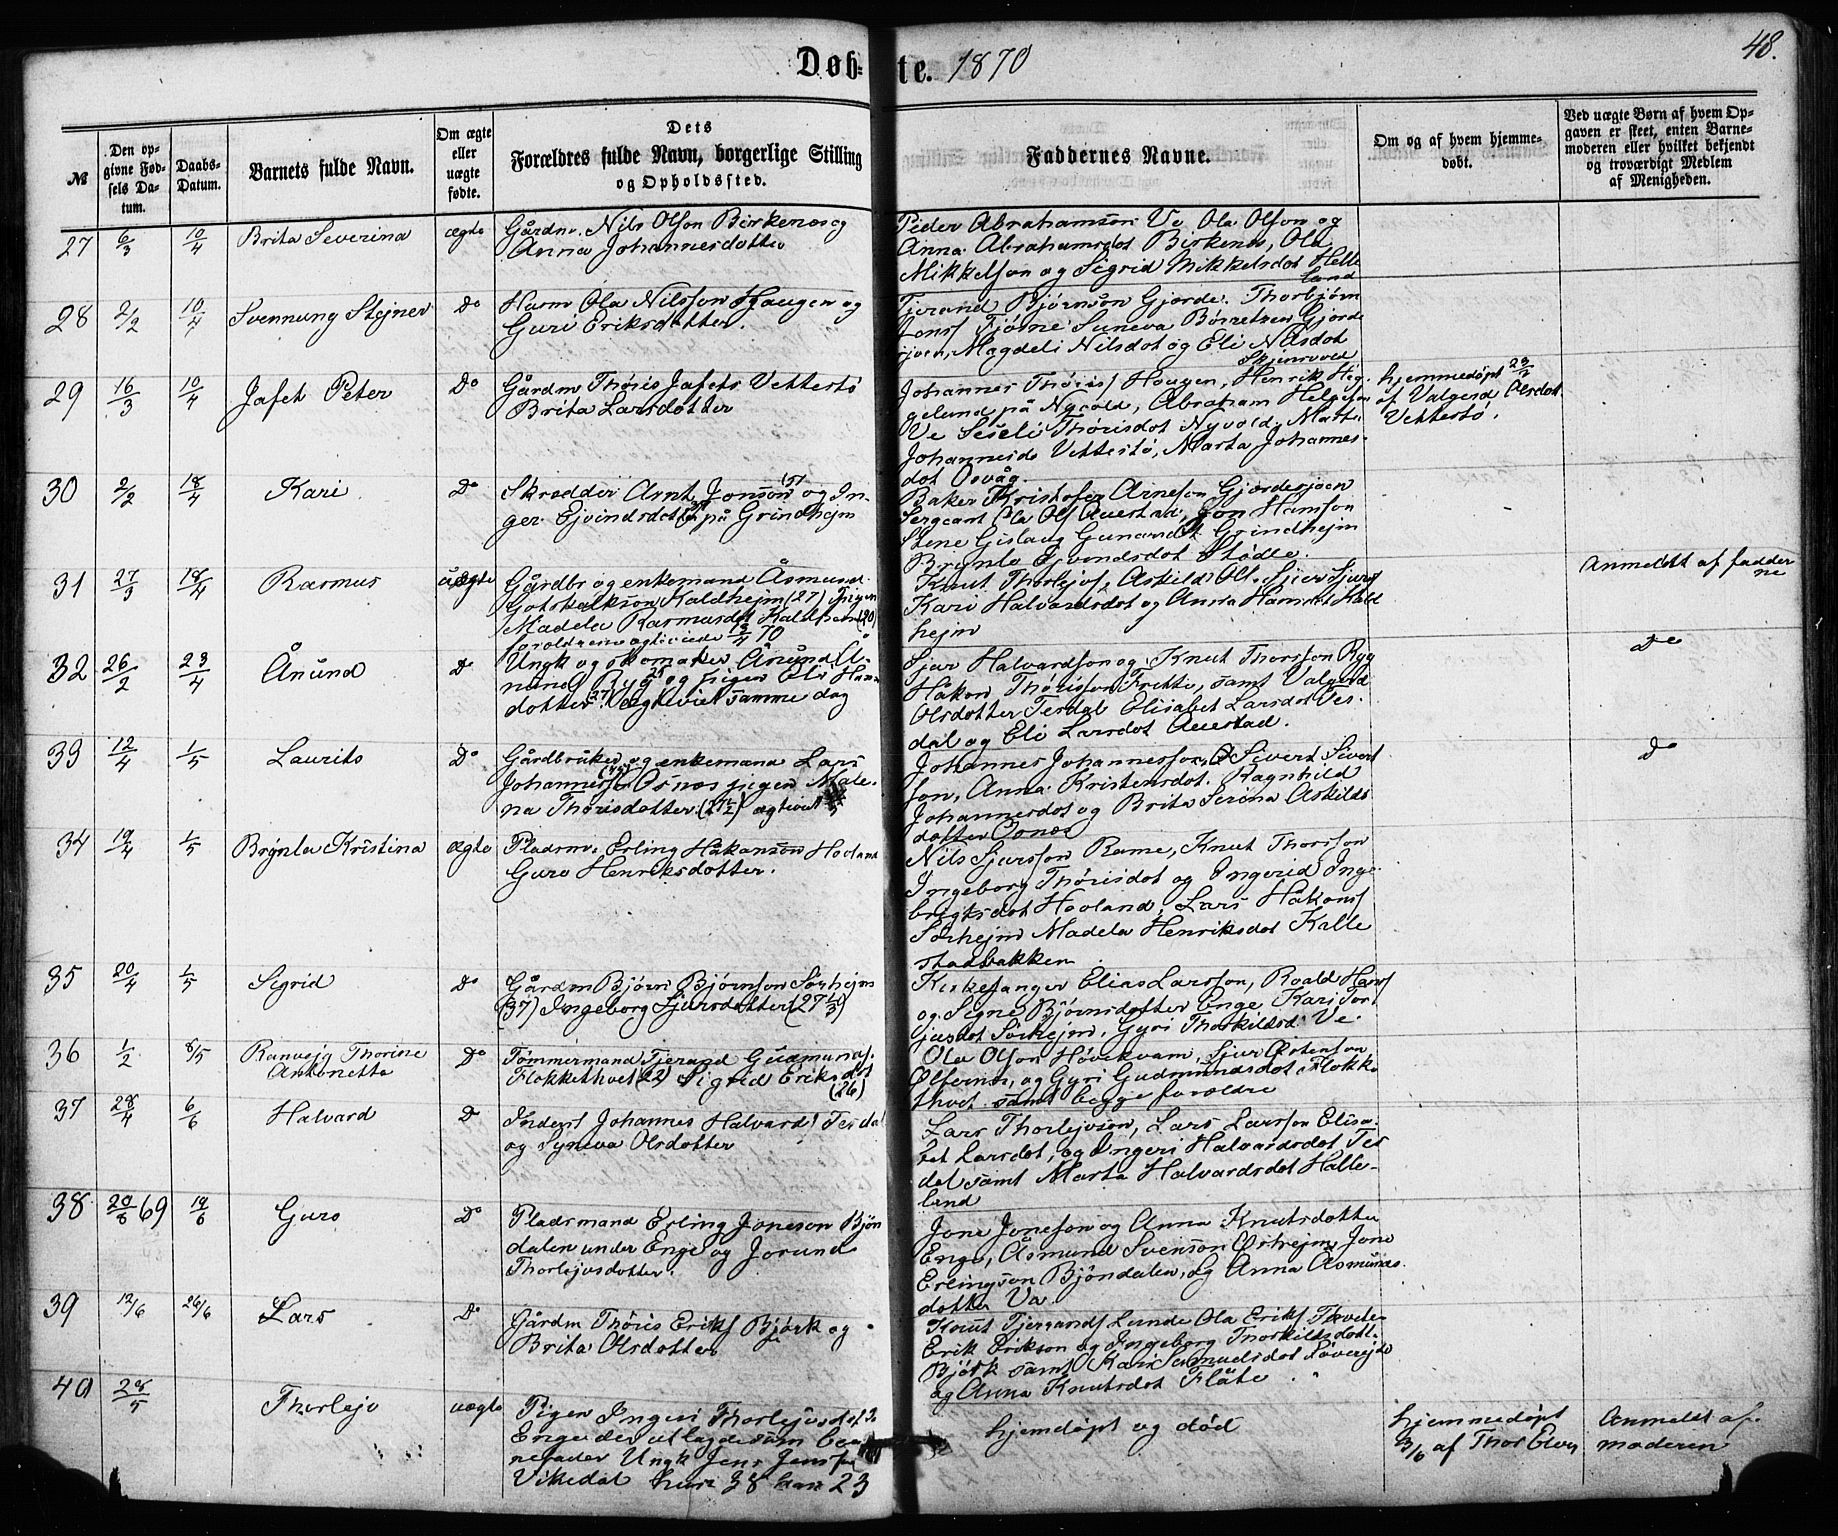 Døb-te. 1870
48.
№
Den op-
givne Fød-
sels Da-
tum.
Daabs-
Datum.
Barnets fulde Navn.
Om ægte
eller
uægte
fødte.
Dets
Forældres fulde Navn, borgerlige Stilling
og Opholdssted.
Faddernes Navne.
Om og af hvem hjemme-
døbt.
Ved uægte Børn af hvem Op-
gaven er skeet, enten Barne-
moderen eller hvilket bekjendt
og troværdigt Medlem
af Menigheden.
27 6/3 10/4 Brita Severina ægte
Gårdm. Nils Olson Birkenes og
Anna Johannesdotter
Peder Abrahamson Ve Ola Olson og
Anna Abrahamsdot Birkenes, Ola
Mikkelson og Sigrid Mikkelsdot Helle
land
28 2/2 10/4 Svennung Stejner Do
Husm Ola Nilsson Haugen og
Guri Eriksdotter.
Tjerand Bjørnson Gjerde. Thorbjørn
Jons Fjørne Suneva Børretzen Gjerde
sjoen, Magdeli Nilsdot og Eli Nilsdot
Skjensvold
29 16/3 10/4 Jafet Peter Do
Gårdm Thøris Jafets Vettestø
Brita Larsdotter
Johannes Thøriss Haugen, Henrik Hig-
gelund på Nyvold, Abraham Helgeson
Ve Seseli Thørisdot Nyvold. Marte
Johannesdo Vettestø, Marta Johannes-
dot Osvåg.
hjemmedøpt 23/3
af Valgerd Olsdot
Vettestø.
30 2/2 18/4 Kari Do
Skrædder Arnt Jonson (51) og In-
ger Ejvindsdotter på Grindhejm
Baker Kristofer Arneson Gjerdesjoen
Sergeant Ola Ols Auestad, Jon Hanson
Stene Gislaug Gunarsdt Grindhejm
Brynla Ejvendsdot Stødle.
31 27/3 18/4 Rasmus uægte
Gårdbr og enkemand Åsmund
Gotskalkson Kaldhejm (27) Pigen
Madela Rasmusdot Kaldheim (20)
foreldrene egteviede 18/4 70
Knut Thorlejvs, Askild Ols. Sjur Sjurs
Kari Halvardsdot og Anna Hansdot Kald
hejm
Anmeldt af fadder
ne
32 26/2 23/4 Ånund Do
Ungk og skomaker Ånund Å-
nunds Ryg og pigen Eli Hans
dotter (27) Vegteviet samme dag
Sjur Halvardson og Knut Thorsson Ryg
Håkon Thørisson Frette, samt Valgerd
Olsdotter Tesdal Elisabet Larsdot Tes-
dal og Eli Larsdot Auestad.
Do
33 12/4 1/5 Laurits Do
Gårdbruker og enkemand Lars
Johannesson Osnes pigen Male-
na Thørisdotter (27 1/2) egteviet
Johannes Johannesson, Sivert Sivert
son, Anna Kristensdot. Ragnhild
Johannesdot og Brita Serina Askilds
dotter Osnes
Do
34 19/4 1/5 Brynla Kristina ægte
Pladsm. Erling Håkanson Hovland
Guro Henriksdotter.
Nils Sjursson Rame, Knut Thorsson
Ingeborg Thørisdot og Ingerid Inge-
brigtsdot Hovland, Lars Håkons
Sørhejm Madela Henriksdot Kalle
stadbakken
35 20/4 1/5 Sigrid Do
Gårdm Bjørn Bjørnson Sørhejm
(37) Ingeborg Sjursdotter (27 1/3)
Kirkesanger Elias Larsson, Roald Hans
og Signe Bjørnsdotter Enge, Kari Tor
ljusdot Sørhejm, Gyri Thorkildsd Ve.
36 1/2 8/5 Ranvejg Thorine Do
Antonetta
Tømmermand Tjerand Gudmunds.
Flokkethvet (22) Sigrid Eriksdot
(26)
Ola Olson Høvikvam, Sjur Østenson
Ølfernes, og Gyri Gudmundsdot Flokke
thvet samt begge foreldre
37 28/4 6/6 Halvard Do
Inderst Johannes Halvards Tesdal
og Syneva Olsdotter
Lars Thorlejvson, Lars Larsson Elisa-
bet Larsdot, og Ingeri Halvardsdot Tes
dal samt Marta Halvardsdot Halle-
land
38 20/8 69 19/6 Guro Do
Pladsmand Erling Joneson Bjøn
dalen under Enge og Jorund
Thorlejvsdotter.
Jone Joneson og Anna Knutsdotter
Enge, Åsmund Svenson Østrejm, Jone
Erlingson Bjøndalen, og Anna Åsmunds
dotter Va
39 12/6 26/6 Lars Do
Gårdm Thøris Eriks Bjørk og
Brita Olsdotter
Knut Tjerands Lunde Ola Eriks Thvete
Erik Erikson og Ingeborg Thorkildsdot
Bjørk samt Kari Samuelsdot Løverejd
og Anna Knutsdot Flåte
40 28/5 Thorlejv uægte
Pigen Ingeri Thorlejvsdot
Enge der utlagde som bar-
nefader Ungk Jens Jensson
Vikedal hun 38 han 23
hjemdøpt og død
hjemmedøpt
3/6 af Thor Elven
Anmeldt af
moderen